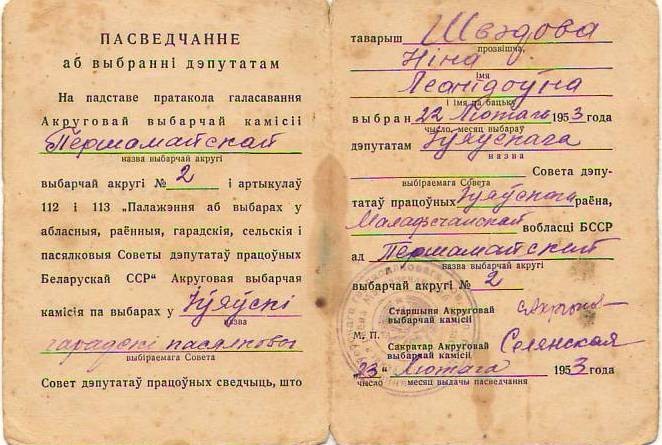 ПАСВЕДЧАННЕ
аб выбранні дэпутатам
На падставе пратакола галасавання
Акруговай выбарчай камісіі
Першамайскай
назва выбарчай акругі
выбарчай акругі № 2 і артыкулаў
112 і 113 „Палажэння аб выбарах у
абласныя, раённыя, гарадскія, сельскія і
пасялковыя Советы дэпутатаў працоўных
Беларускай ССР“ Акруговая выбарчая
камісія па выбарах у Іўяўскі
назва
выбіраемага Совета
Совет дэпутатаў працоўных сведчыць, што
таварыш Шведова
прозвішча,
Ніна
імя
Леанідоўна
і імя па бацьку
выбран 22 Лютага 1953 года
чысло, месяц выбараў
дэпутатам Іўяўскага
назва
Совета дэпу-
выбіраемага Совета
татаў працоўных Іўяўскага раёна,
Маладзечанскай вобласці БССР
ад Першамайскай
назва выбарчай акругі
выбарчай акругі № 2
Старшыня Акруговай
выбарчай камісіі
М. П.
Сакратар Акруговай
выбарчай камісіі
„23“ Лютага 1953 года
чысло месяц выдачы пасведчання